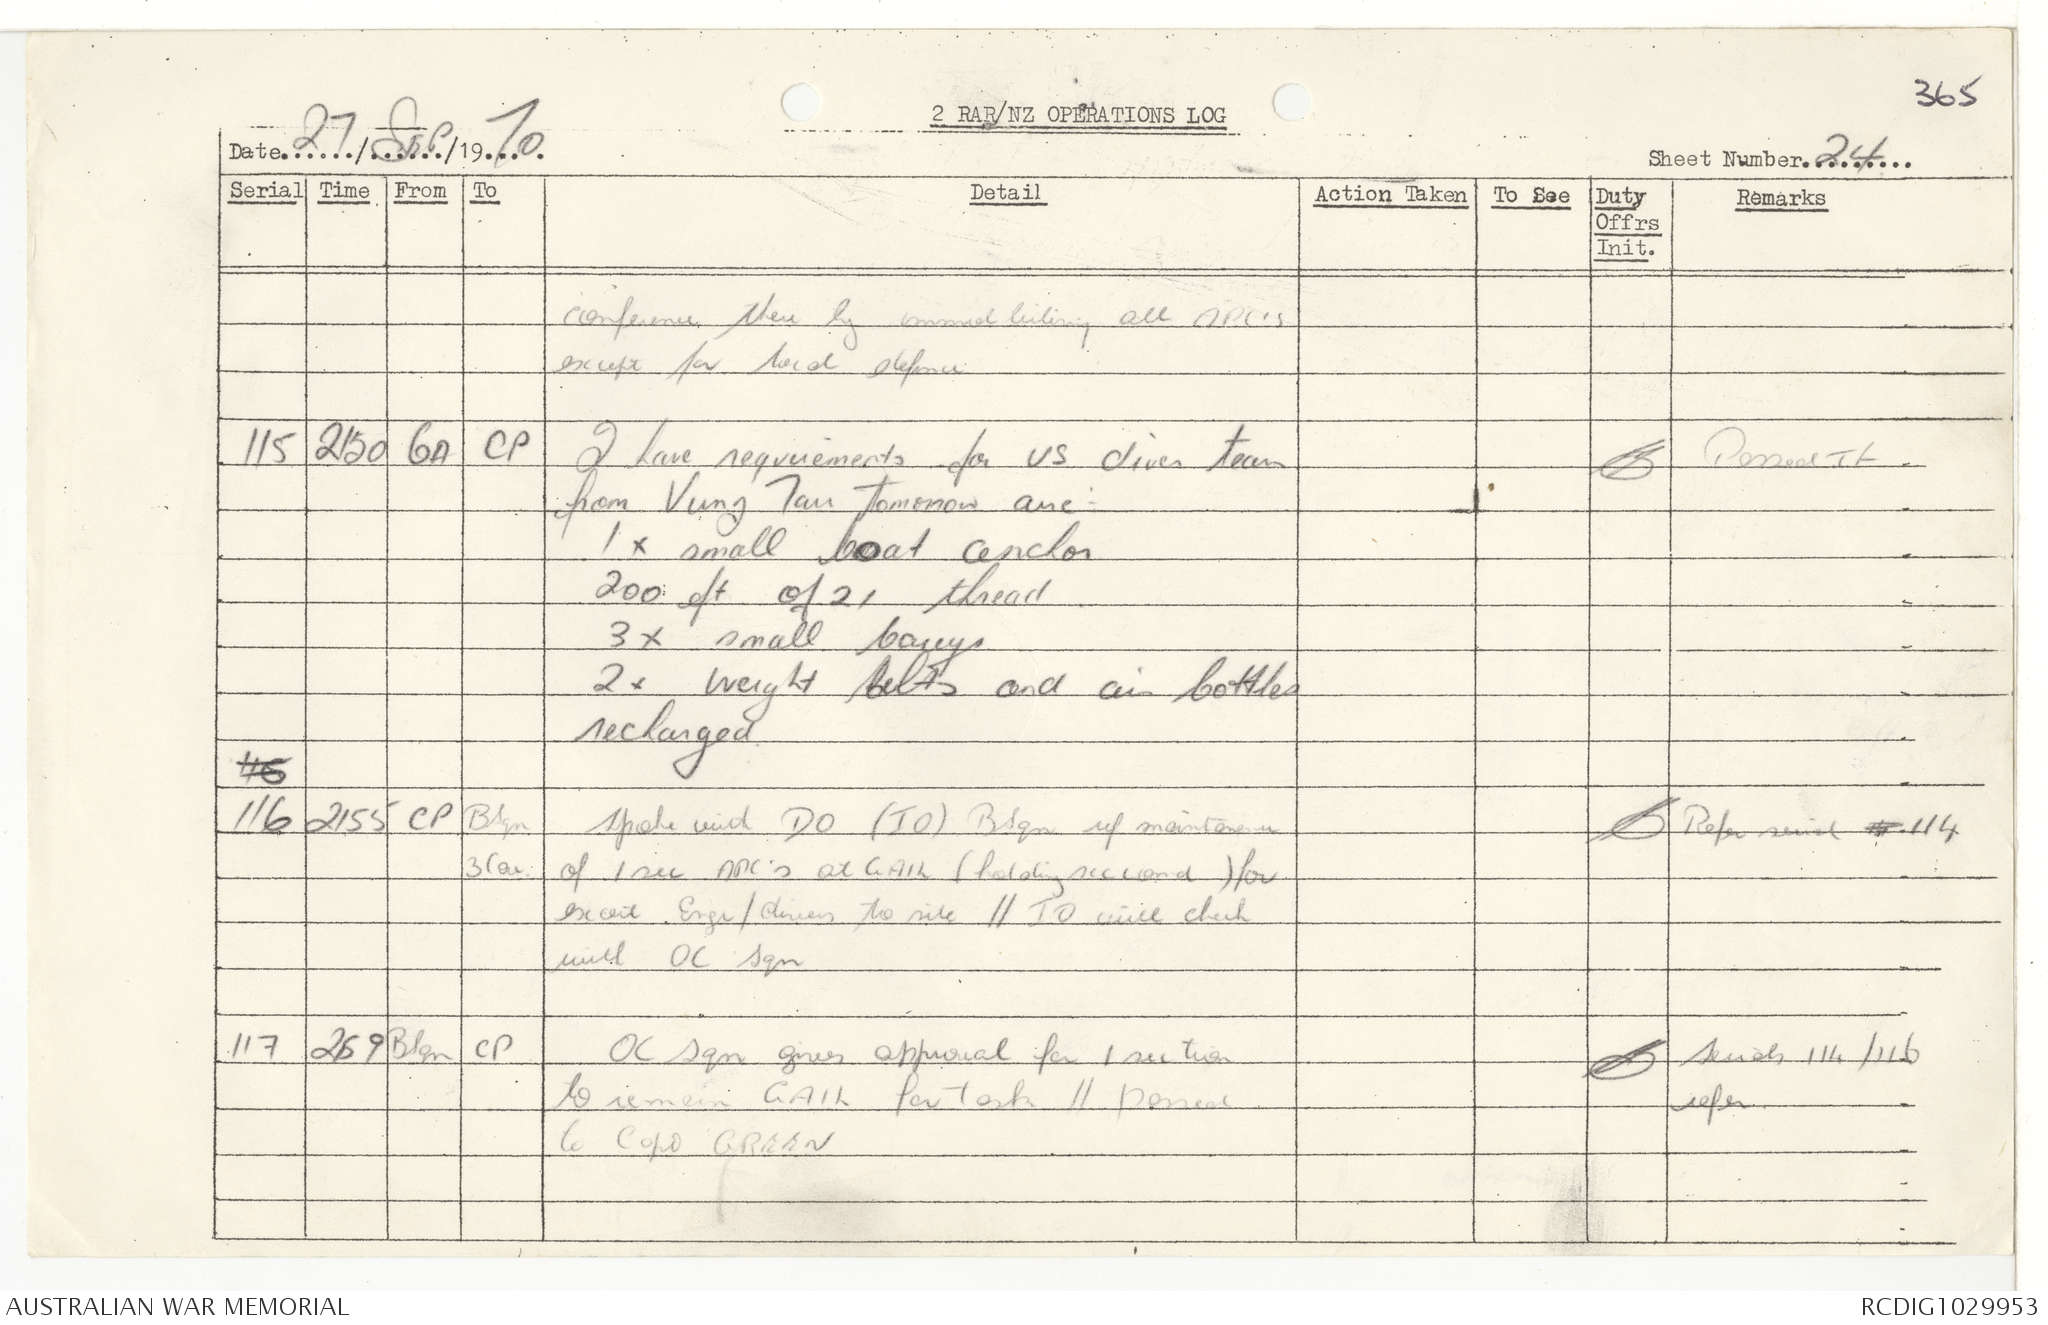 365
2 RAR/NZ OPERATIONS LOG
Date 27/Sep/1970.
Sheet Number 24
Serial Time From To Detail Action Taken To See Duty Offrs Init. Remarks
conference there by immobilising all APC's
except for local defence
115 2150 6A CP I have requirements for US diver team Passed TF
from Vung Tau tomorrow are:-
1 x small boat anchor
200 ft of 21 thread
3 x small
2 x weight belts and air bottles
recharged
116
116 2155 CP BSqn spoke with DO (IO) BSqn ref maintenance Refer serial 114
3Cav. of 1 sec APC's at GAIL (holding second) for
escort Engr/divers to site // IO will check
with OC Sqn
117 2159 BSqn CP OC Sqn gives approval for 1 section Serials 114/116
to remain GAIL for task // passed refer
to Capo GREEN
AUSTRALIAN WAR MEMORIAL
RCDIG1029953